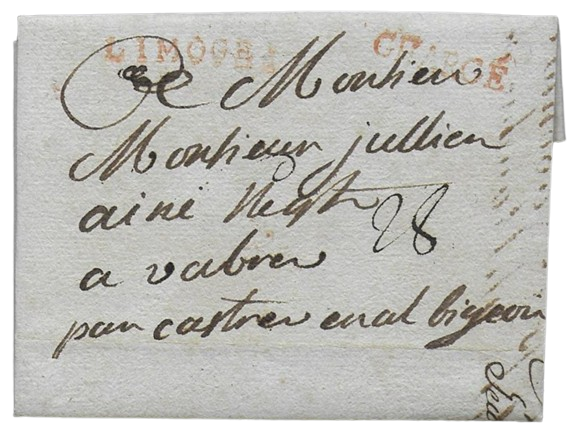 LIMOGES CHARGÉ
A Monsieur
Monsieur jullien
ainé Negt
28
a vabres
par castres en albigeois